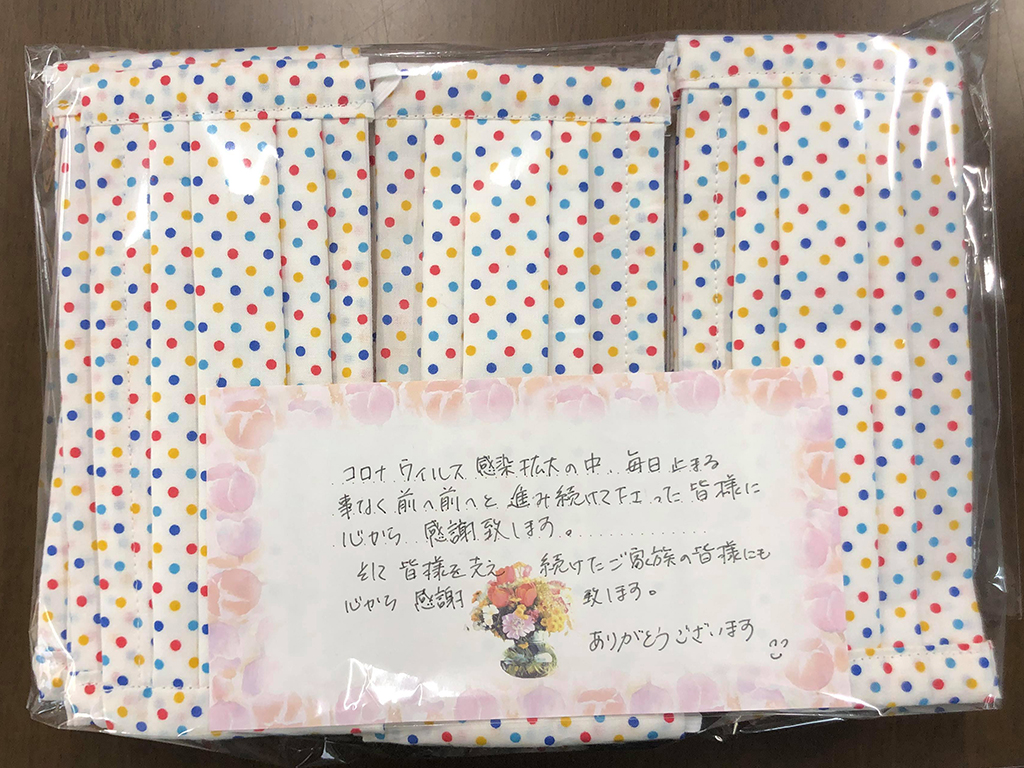 コロナウィルス感染拡大の中、毎日止まる
事なく前へ前へと進み続けて下さった皆様に
心から感謝致します。
そして皆様を支え続けたご家族の皆様にも
心から感謝致します。
ありがとうございます